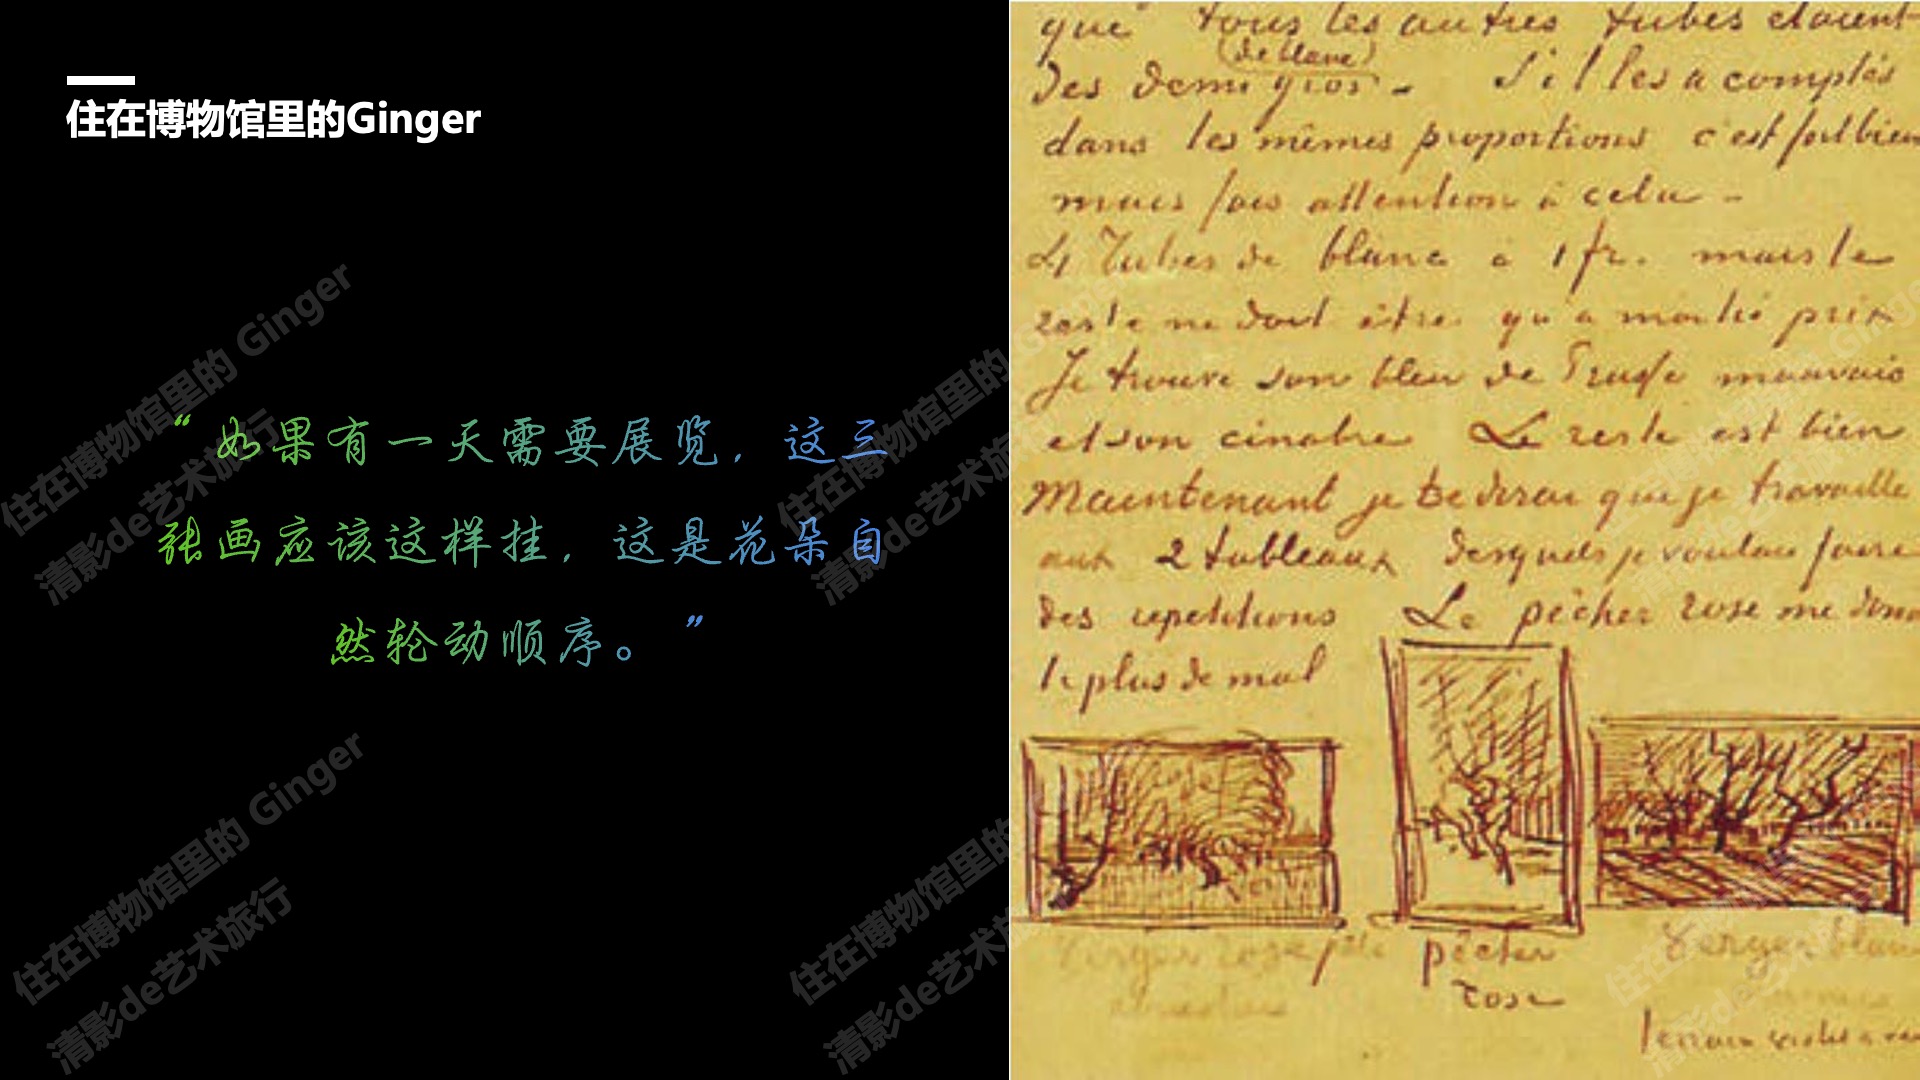 住在博物馆里的Ginger
“如果有一天需要展览，这三
张画应该这样挂，这是花朵自
然轮动顺序。”
que tous les autres tubes etaient
(de blanc)
des demi gros - S'il les a comptés
dans les mêmes proportions c'est fort bien
mais fais attention à cela -
4 Tubes de blanc à 1 fr. mais le
reste ne doit être qu'a moitié prix
Je trouve son bleu de Prusse mauvais
et son cinabre Le reste est bien
Maintenant je te dirai que je travaille
aux 2 tableaux desquels je voulais faire
des repetitions Le pêcher rose me donne
le plus de mal
verger rose pêcher verger blanc
rose
住在博物馆里的 Ginger
清影de艺术旅行
住在博物馆里的 Ginger
清影de艺术旅行
住在博物馆里的 Ginger
清影de艺术旅行
住在博物馆里的 Ginger
清影de艺术旅行